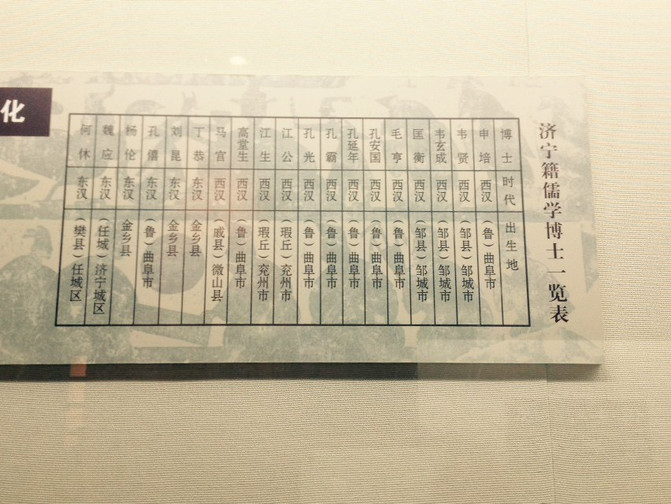 济宁籍儒学博士一览表
博士 时代 出生地
申培 西汉 （鲁）曲阜市
韦贤 西汉 （邹县）邹城市
韦玄成 西汉 （邹县）邹城市
匡衡 西汉 （邹县）邹城市
毛亨 西汉 （鲁）曲阜市
孔安国 西汉 （鲁）曲阜市
孔延年 西汉 （鲁）曲阜市
孔霸 西汉 （鲁）曲阜市
孔光 西汉 （鲁）曲阜市
江公 西汉 （瑕丘）兖州市
江生 西汉 （瑕丘）兖州市
高堂生 西汉 （鲁）曲阜市
马宫 西汉 （戚县）微山县
丁恭 东汉 金乡县
刘昆 东汉 金乡县
孔僖 东汉 （鲁）曲阜市
杨伦 东汉 金乡县
魏应 东汉 （任城）济宁城区
何休 东汉 （樊县）任城区
化